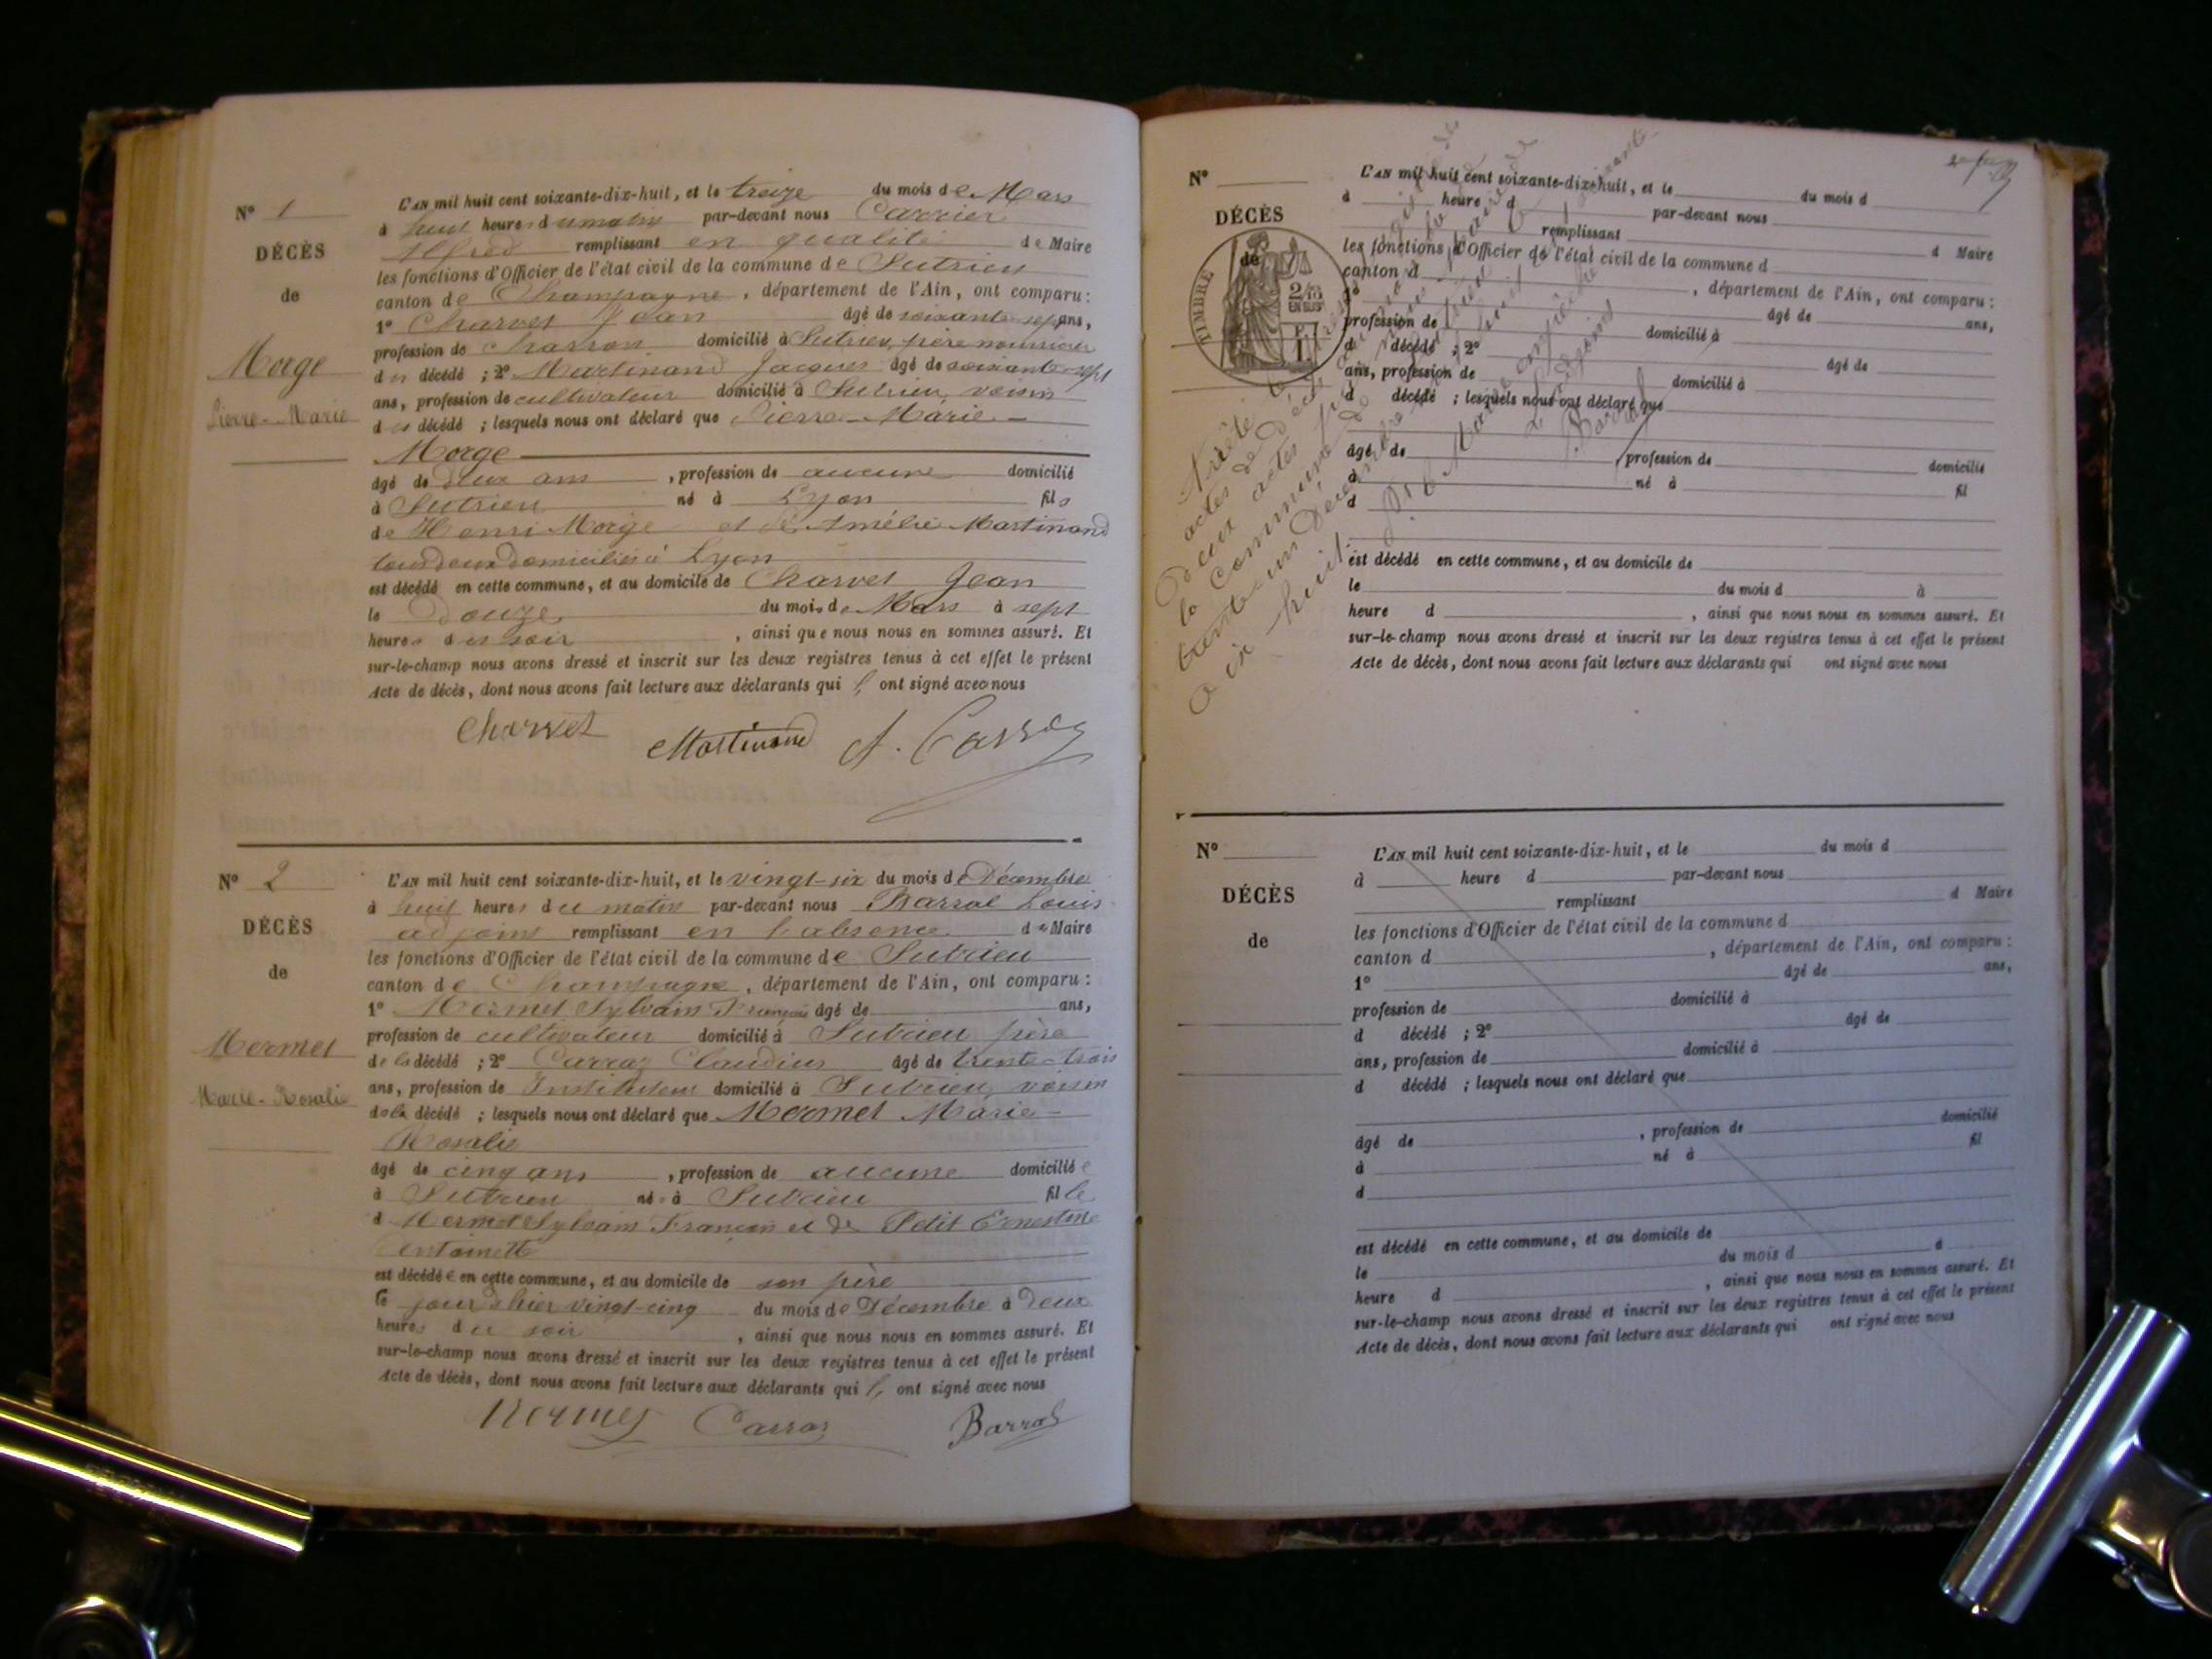 N° 1
DÉCÈS
de
Morge
Pierre-Marie
L'AN mil huit cent soixante-dix-huit, et le treize du mois de Mars
à huit heures du matin par-devant nous Carrier
Alfred remplissant en qualité de Maire
les fonctions d'Officier de l'état civil de la commune de Sutrieu
canton de Champagne, département de l'Ain, ont comparu :
1° Charvet Jean âgé de soixante-sept ans,
profession de charron domicilié à Sutrieu, père nourricier
du décédé ; 2° Martinand Jacques âgé de soixante-sept
ans, profession de cultivateur domicilié à Sutrieu, voisin
du décédé ; lesquels nous ont déclaré que Pierre-Marie
Morge
âgé de deux ans, profession de aucune domicilié
à Sutrieu né à Lyon fils
de Henri Morge et de Amélie Martinand
tous deux domiciliés à Lyon
est décédé en cette commune, et au domicile de Charvet Jean
le Douze du mois de Mars à sept
heures du soir, ainsi que nous nous en sommes assuré. Et
sur-le-champ nous avons dressé et inscrit sur les deux registres tenus à cet effet le présent
Acte de décès, dont nous avons fait lecture aux déclarants qui ont signé avec nous
Charvet Martinand
N° 2
DÉCÈS
de
Mermet
Marie-Rosalie
L'AN mil huit cent soixante-dix-huit, et le vingt-six du mois de Décembre
à huit heures du matin par-devant nous Barral Louis
adjoint remplissant en l'absence du Maire
les fonctions d'Officier de l'état civil de la commune de Sutrieu
canton de Champagne, département de l'Ain, ont comparu :
1° Mermet Sylvain François âgé de ans,
profession de cultivateur domicilié à Sutrieu père
de la décédé ; 2° Carraz Claudius âgé de trente-trois
ans, profession de Instituteur domicilié à Sutrieu, voisin
de la décédé ; lesquels nous ont déclaré que Mermet Marie-
Rosalie
âgé de cinq ans, profession de aucune domiciliée
à Sutrieu né à Sutrieu fille
d Mermet Sylvain François et de Petit Ernestine
Antoinette
est décédée en cette commune, et au domicile de son père
le jour d'hier vingt-cinq du mois de Décembre à deux
heures du soir, ainsi que nous nous en sommes assuré. Et
sur-le-champ nous avons dressé et inscrit sur les deux registres tenus à cet effet le présent
Acte de décès, dont nous avons fait lecture aux déclarants qui ont signé avec nous
Mermet Carraz Barral
N°
DÉCÈS
de
TIMBRE
L'AN mil huit cent soixante-dix-huit, et le du mois d
à heure d par-devant nous
remplissant d Maire
les fonctions d'Officier de l'état civil de la commune d
canton d, département de l'Ain, ont comparu :
1° âgé de ans,
profession de domicilié à
d décédé ; 2° âgé de
ans, profession de domicilié à
d décédé ; lesquels nous ont déclaré que
âgé de, profession de domicilié
à né à fil
d
est décédé en cette commune, et au domicile de
le du mois d à
heure d, ainsi que nous nous en sommes assuré. Et
sur-le-champ nous avons dressé et inscrit sur les deux registres tenus à cet effet le présent
Acte de décès, dont nous avons fait lecture aux déclarants qui ont signé avec nous
N°
DÉCÈS
de
L'AN mil huit cent soixante-dix-huit, et le du mois d
à heure d par-devant nous
remplissant d Maire
les fonctions d'Officier de l'état civil de la commune d
canton d, département de l'Ain, ont comparu :
1° âgé de ans,
profession de domicilié à
d décédé ; 2° âgé de
ans, profession de domicilié à
d décédé ; lesquels nous ont déclaré que
âgé de, profession de domicilié
à né à fil
d
est décédé en cette commune, et au domicile de
le du mois d à
heure d, ainsi que nous nous en sommes assuré. Et
sur-le-champ nous avons dressé et inscrit sur les deux registres tenus à cet effet le présent
Acte de décès, dont nous avons fait lecture aux déclarants qui ont signé avec nous